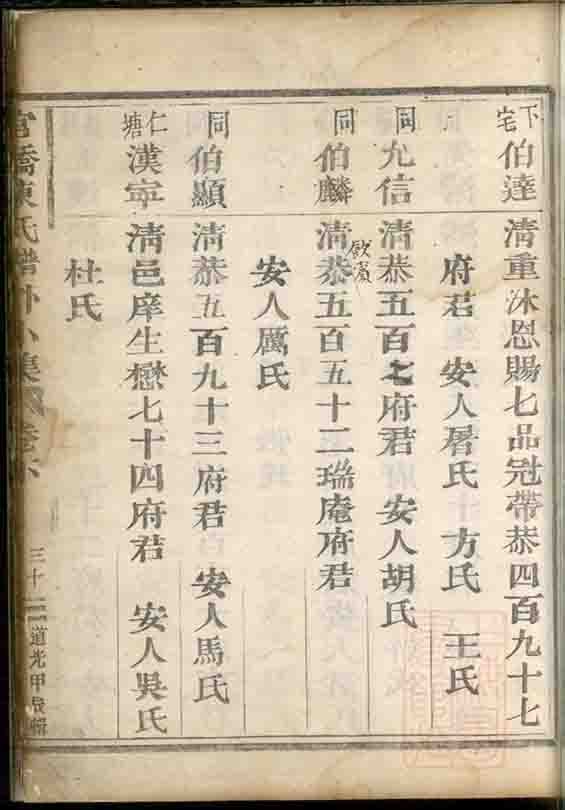 下宅 伯達 清重沐恩賜七品冠帶恭四百九十七
府君 安人屠氏 方氏 王氏
同 允信 清恭五百七府君 安人胡氏
同 伯麟 清飲賓恭五百五十二瑞庵府君
安人厲氏
同 伯顯 清恭五百九十三府君 安人馬氏
仁塘 漢寜 清邑庠生懋七十四府君 安人吳氏
杜氏
官橋陳氏譜外小集 卷下 三十二 道光甲辰輯